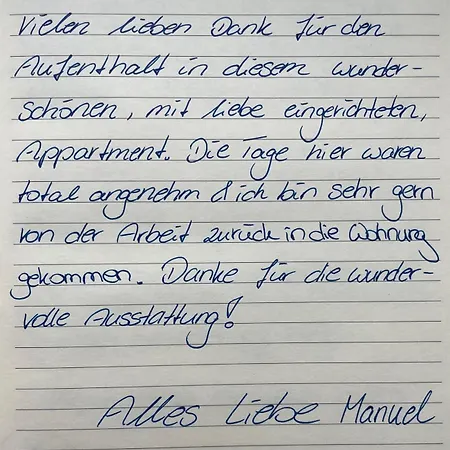 Vielen lieben Dank für den
Aufenthalt in diesem wunder-
schönen, mit liebe eingerichteten,
Appartment. Die Tage hier waren
total angenehm & ich bin sehr gern
von der Arbeit zurück in die Wohnung
gekommen. Danke für die wunder-
volle Ausstattung!
Alles Liebe Manuel